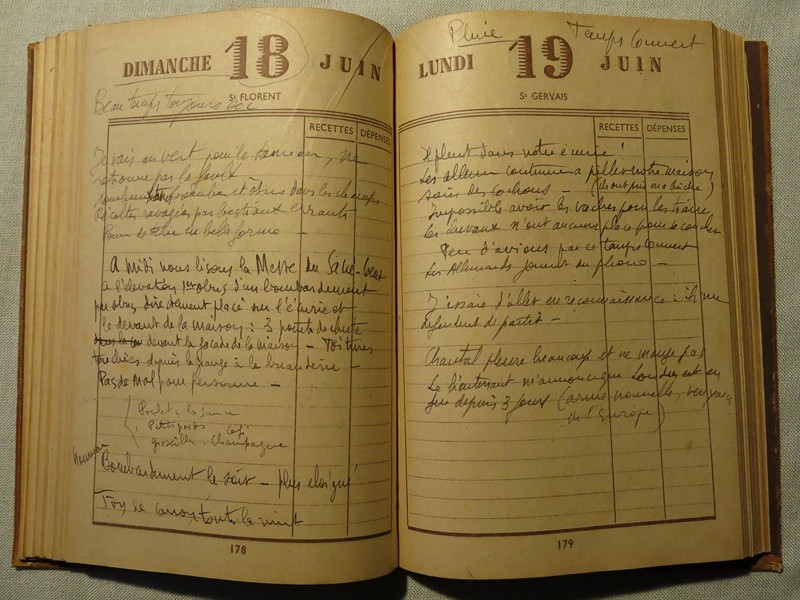 DIMANCHE 18 JUIN
St FLORENT
Beau temps toujours sec
RECETTES DÉPENSES
Je vais au vert pour le ne
retrouve pas la
et dans les champs
Récoltes ravagées par bestiaux errants
Pom de terre en belle forme —
A Midi nous lisons la Messe du Sacré-Coeur
à l'élévation 1ers obus d'un bombardement
par obus directement placé sur l'écurie et
le devant de la maison : 3 points de chute
devant la façade de la maison — Toitures
depuis la grange à la buanderie —
Pas de mal pour personne —
Poulet
Petits pois Café
groseilles - Champagne
nouveau
Bombardement le soir — plus éloigné
de canon toute la nuit
178
Pluie Temps couvert
LUNDI 19 JUIN
St GERVAIS
RECETTES DÉPENSES
Il pleut dans notre écurie !
Les allemands continuent à piller notre maison
sales des cochons — (ils ont pris ma bêche)
Impossible avoir les vaches pour les traire
les chevaux n'ont aucune place pour se coucher
Peu d'avions par ce temps couvert
Les Allemands jouent du phono —
J'essaie d'aller en reconnaissance : ils me
défendent de partir —
Chantal pleure beaucoup et ne mange pas
Le lieutenant m'annonce que Londres est en
feu depuis 3 jours (arme nouvelle, vengeance
de l'Europe)
179